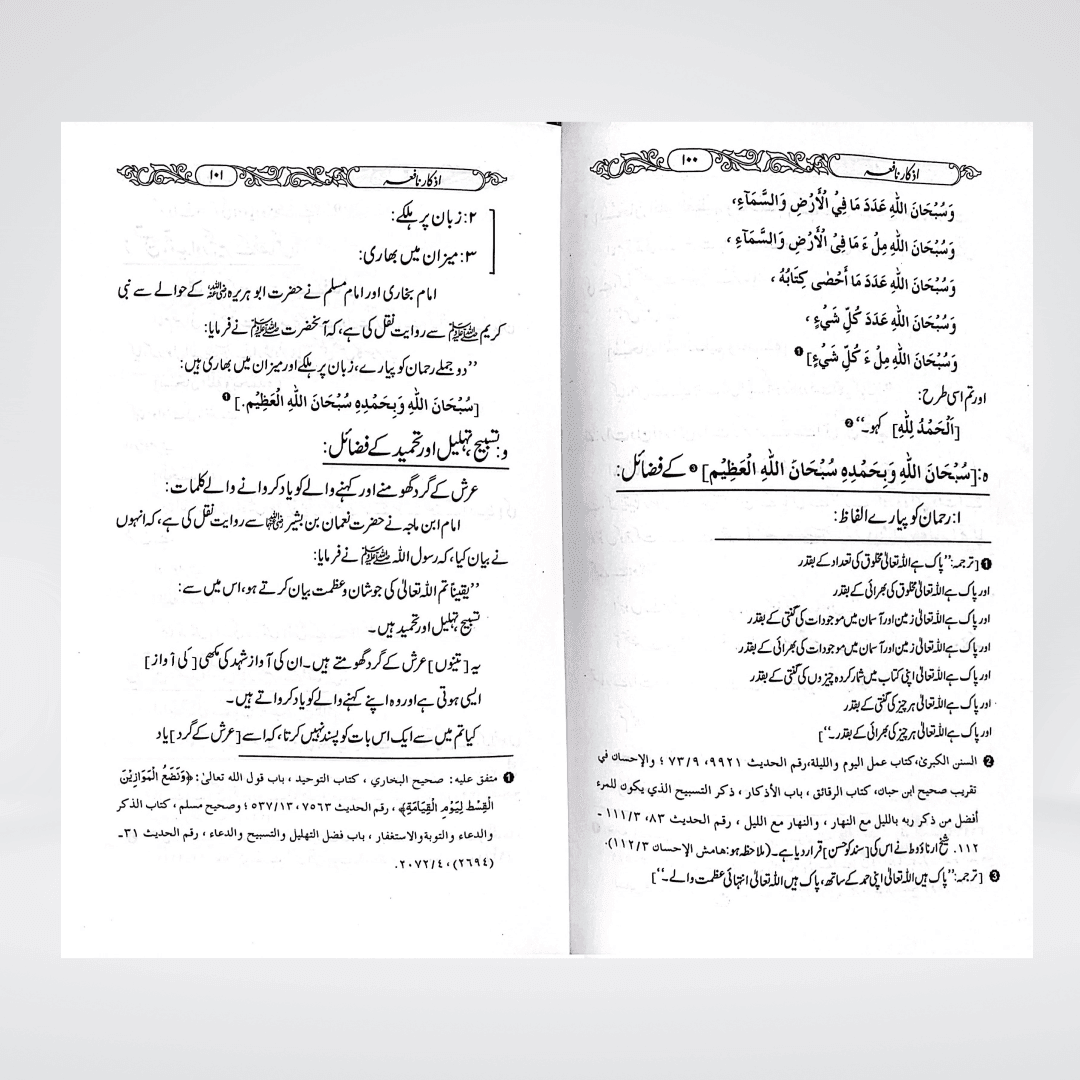 اذکار نافعہ ۱۰۰
وَسُبْحَانَ اللّٰهِ عَدَدَ مَا فِي الْأَرْضِ وَالسَّمَآءِ،
وَسُبْحَانَ اللّٰهِ مِلْءَ مَا فِي الْأَرْضِ وَالسَّمَآءِ ،
وَسُبْحَانَ اللّٰهِ عَدَدَ مَا أَحْصٰى كِتَابُهُ ،
وَسُبْحَانَ اللّٰهِ عَدَدَ كُلِّ شَيْءٍ ،
وَسُبْحَانَ اللّٰهِ مِلْءَ كُلِّ شَيْءٍ] ❶
اور تم اسی طرح:
[اَلْحَمْدُ لِلّٰهِ] کہو۔‘‘ ❷
ہ: [سُبْحَانَ اللّٰهِ وَبِحَمْدِهِ سُبْحَانَ اللّٰهِ الْعَظِيْمِ] ❸ کے فضائل:
۱: رحمان کو پیارے الفاظ:
❶ [ترجمہ: ’’پاک ہے اللہ تعالیٰ مخلوق کی تعداد کے بقدر
اور پاک ہے اللہ تعالیٰ مخلوق کی بھرائی کے بقدر
اور پاک ہے اللہ تعالیٰ زمین اور آسمان میں موجودات کی گنتی کے بقدر
اور پاک ہے اللہ تعالیٰ زمین اور آسمان میں موجودات کی بھرائی کے بقدر
اور پاک ہے اللہ تعالیٰ اپنی کتاب میں شمار کردہ چیزوں کی گنتی کے بقدر
اور پاک ہے اللہ تعالیٰ ہر چیز کی گنتی کے بقدر
اور پاک ہے اللہ تعالیٰ ہر چیز کی بھرائی کے بقدر۔‘‘]
❷ السنن الكبرىٰ، كتاب عمل اليوم والليلة، رقم الحديث ۹۹۲۱، ۷۳/۹ ؛ والإحسان في
تقريب صحيح ابن حبان، كتاب الرقائق ، باب الأذكار ، ذكر التسبيح الذي يكون للمرء
أفضل من ذكر ربه بالليل مع النهار ، والنهار مع الليل ، رقم الحديث ۸۳، ۱۱۱/۳ ۔
۱۱۲. شیخ ارناؤوط نے اس کی [سند کو حسن] قرار دیا ہے۔ (ملاحظہ ہو: هامش الإحسان ۱۱۲/۳).
❸ [ترجمہ: ’’پاک ہیں اللہ تعالیٰ اپنی حمد کے ساتھ، پاک ہیں اللہ تعالیٰ انتہائی عظمت والے۔‘‘]
اذکار نافعہ ۱۰۱
۲: زبان پر ہلکے:
۳: میزان میں بھاری:
امام بخاری اور امام مسلم نے حضرت ابو ہریرہ رضی اللہ عنہ کے حوالے سے نبی
کریم ﷺ سے روایت نقل کی ہے، کہ آنحضرت ﷺ نے فرمایا:
’’دو جملے رحمان کو پیارے، زبان پر ہلکے اور میزان میں بھاری ہیں:
[سُبْحَانَ اللّٰهِ وَبِحَمْدِهِ سُبْحَانَ اللّٰهِ الْعَظِيْمِ.] ❶
و: تسبیح، تہلیل اور تحمید کے فضائل:
عرش کے گرد گھومنے اور کہنے والے کو یاد کروانے والے کلمات:
امام ابن ماجہ نے حضرت نعمان بن بشیر رضی اللہ عنہما سے روایت نقل کی ہے، کہ انہوں
نے بیان کیا، کہ رسول اللہ ﷺ نے فرمایا:
’’یقیناً تم اللہ تعالیٰ کی جو شان و عظمت بیان کرتے ہو، اس میں سے:
تسبیح، تہلیل اور تحمید ہیں۔
یہ [تینوں] عرش کے گرد گھومتے ہیں۔ ان کی آواز شہد کی مکھی [کی آواز]
ایسی ہوتی ہے اور وہ اپنے کہنے والے کو یاد کرواتے ہیں۔
کیا تم میں سے ایک اس بات کو پسند نہیں کرتا، کہ اسے [عرش کے گرد] یاد
❶ متفق عليه: صحيح البخاري ، كتاب التوحيد ، باب قول الله تعالىٰ: ﴿وَنَضَعُ الْمَوَازِيْنَ
الْقِسْطَ لِيَوْمِ الْقِيَامَةِ﴾ ، رقم الحديث ۷۵۶۳، ۵۳۷/۱۳ ؛ وصحيح مسلم ، كتاب الذكر
والدعاء والتوبة والاستغفار ، باب فضل التهليل والتسبيح والدعاء ، رقم الحديث ۳۱۔
(۲۶۹٤)، ۲۰۷۲/٤.